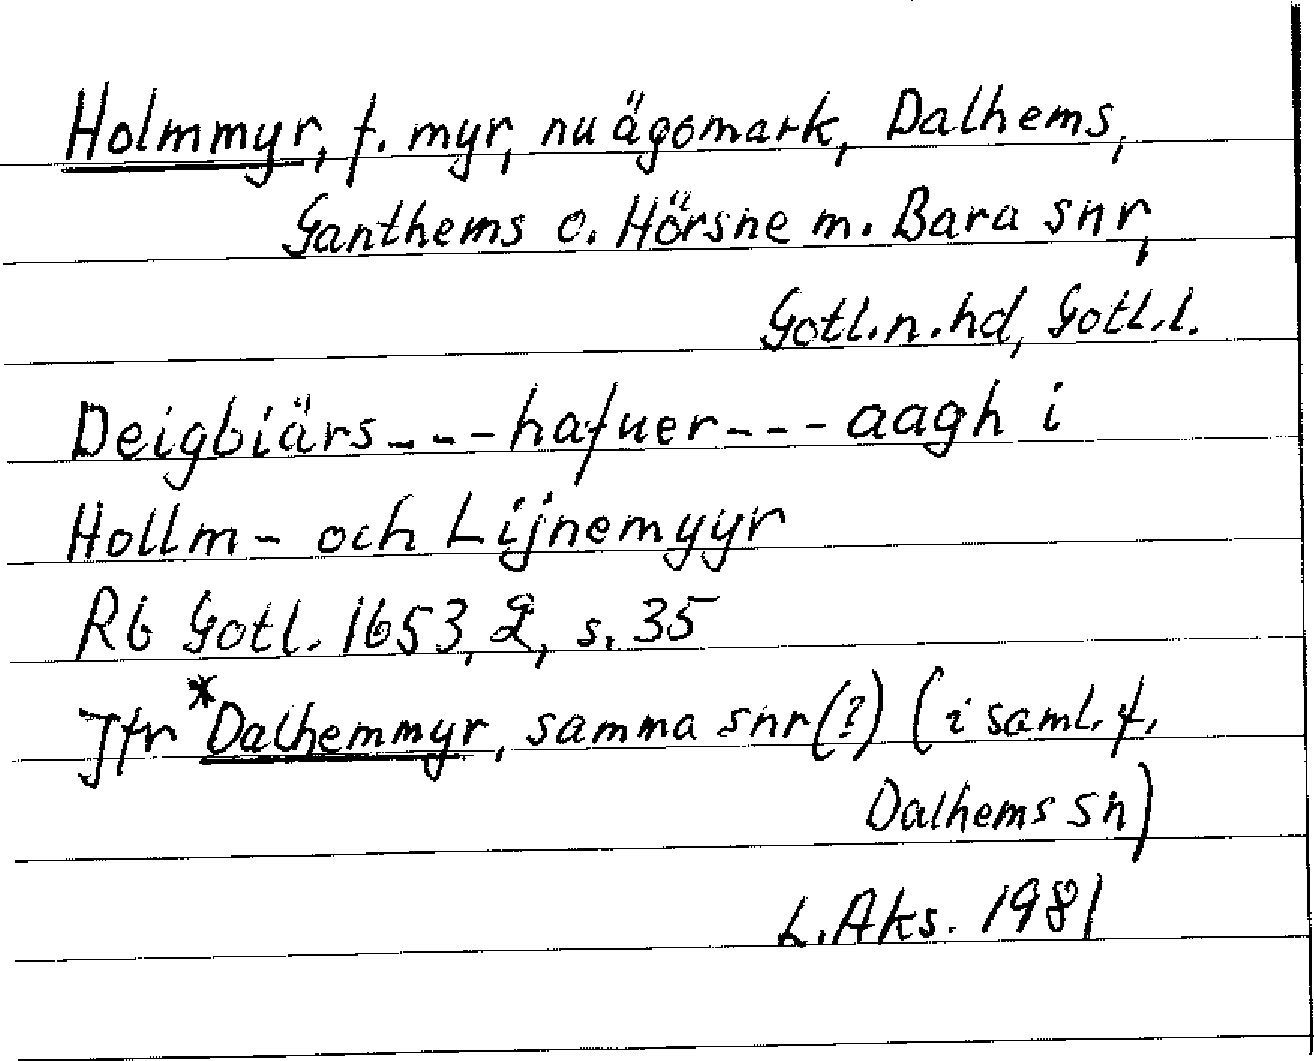 Holmmyr, f. myr, nu ägomark, Dalhems,
Ganthems o. Hörsne m. Bara snr,
Gotl.n.hd, Gotl.l.
Deigbiärs---hafuer---aagh i
Hollm- och Lijnemyyr
Rb Gotl. 1653, 2, s. 35
Jfr *Dalhemmyr, samma snr(?) (i saml. f.
Dalhems sn)
L.Aks. 1981